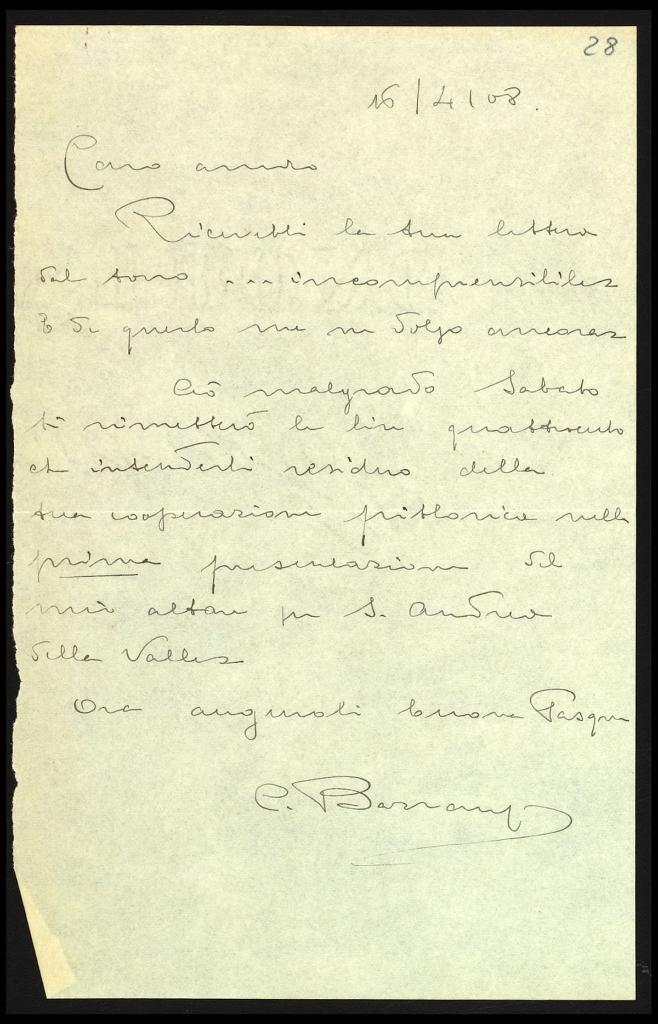 28
16/4/08.
Caro amico
Ricevetti la tua lettera
dal tono ... incomprensibile
E di questo me ne dolgo ancora
Ciò malgrado Sabato
ti rimetterò le lire quattrocento
che intenderti residuo della
tua cooperazione pittorica nella
prima presentazione del
mio altare per S. Andrea
della Valle
Ora augurati buona Pasqua
C.